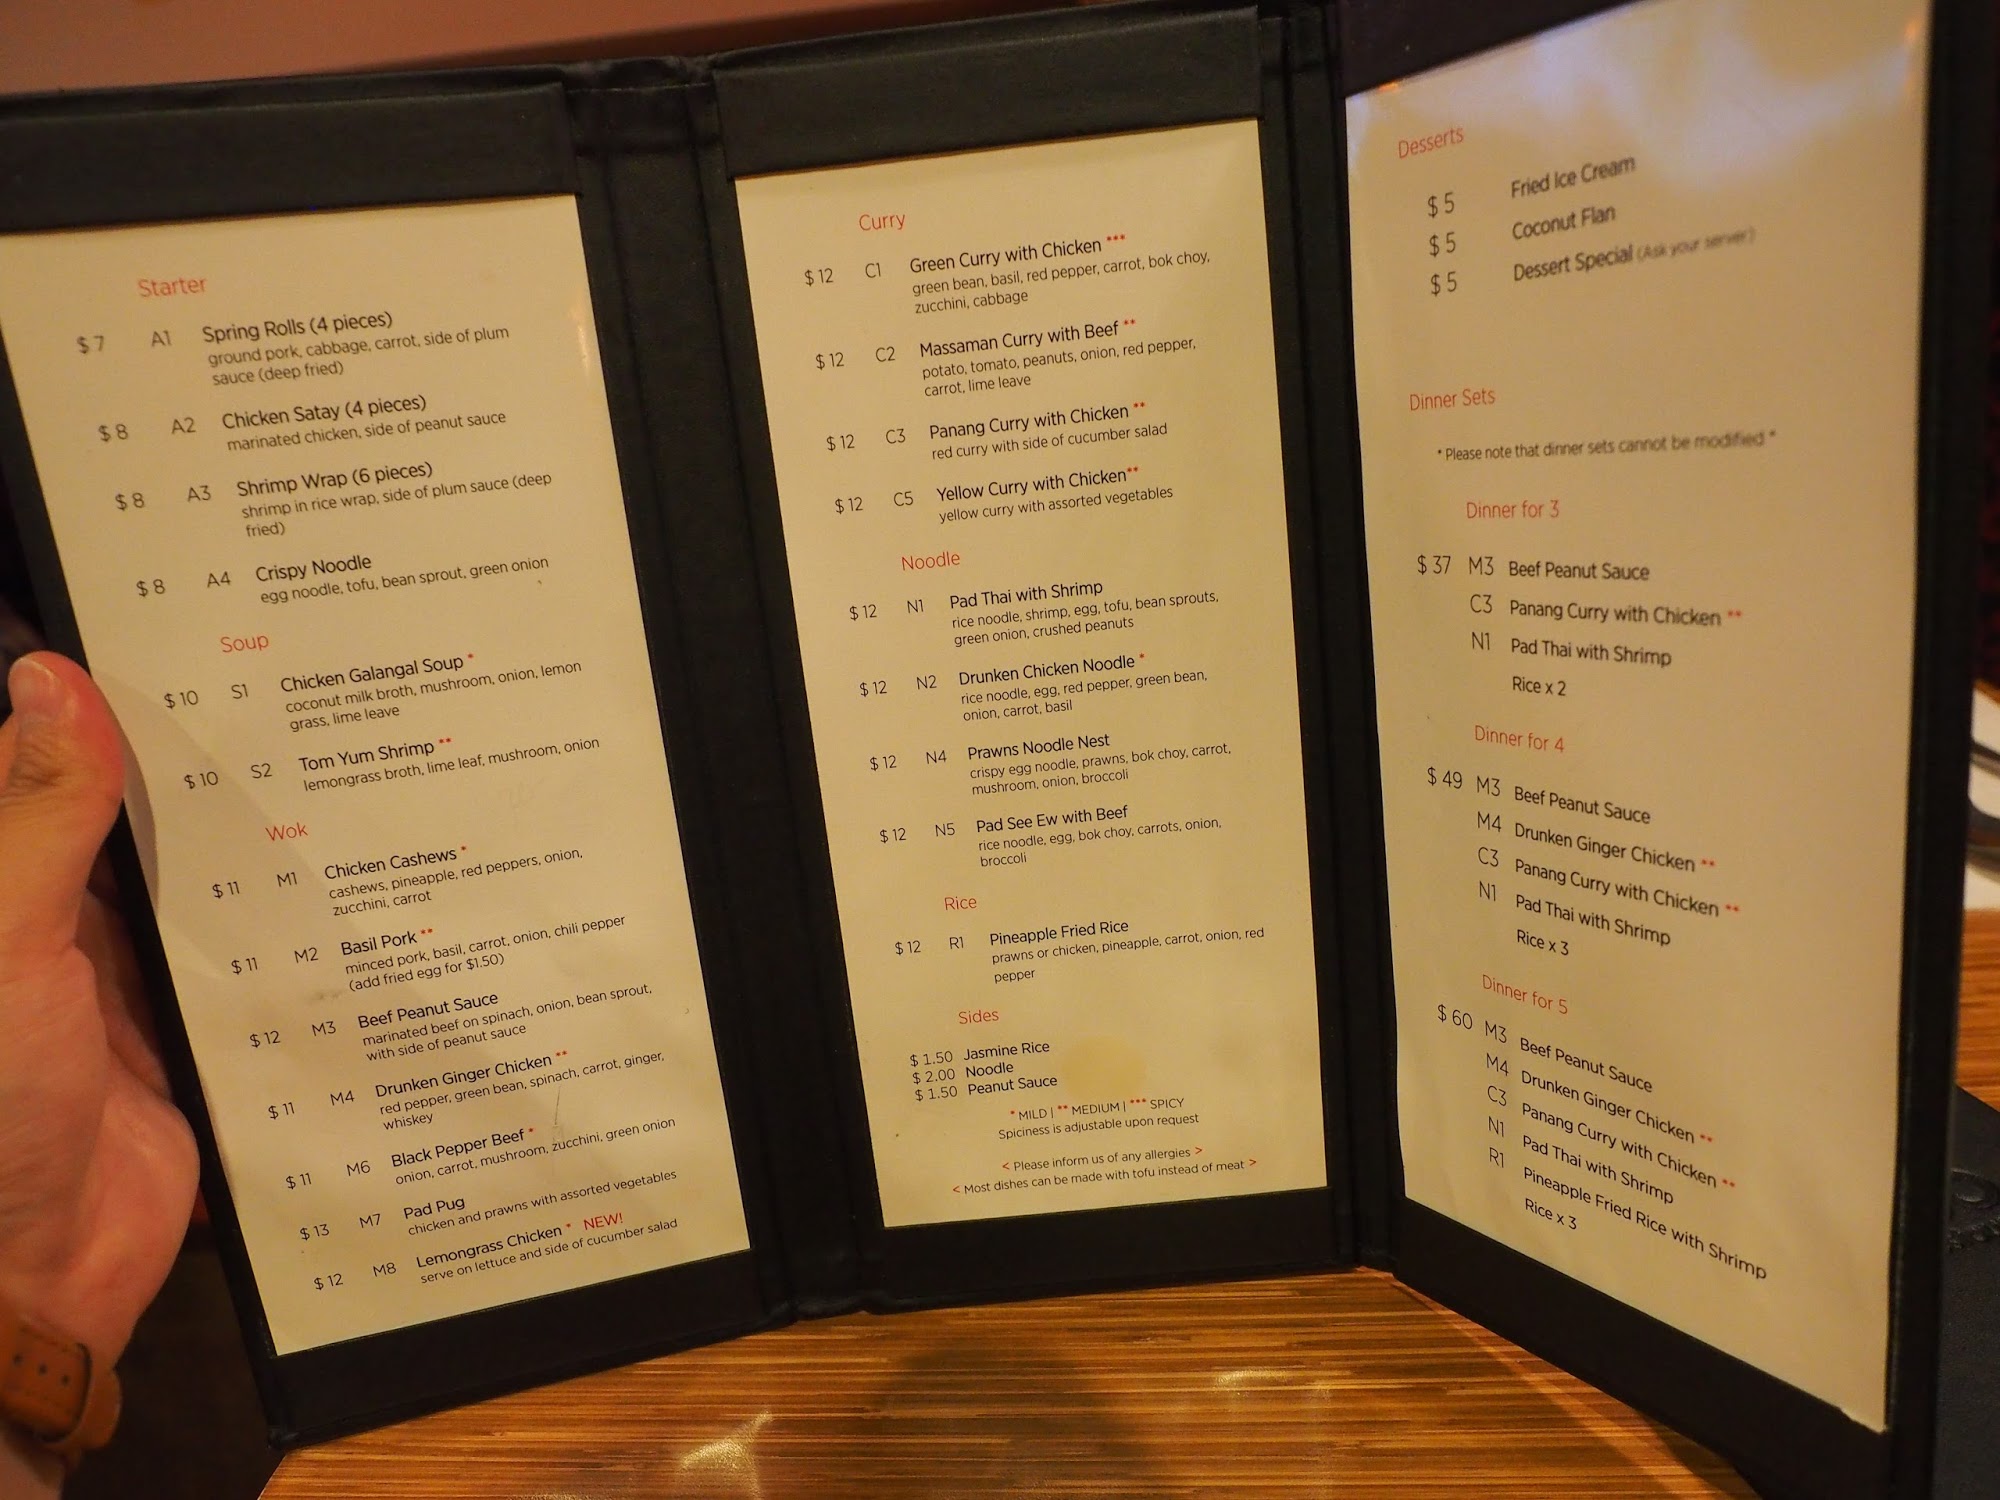 Starter
$ 7 A1 Spring Rolls (4 pieces)
ground pork, cabbage, carrot, side of plum
sauce (deep fried)
$ 8 A2 Chicken Satay (4 pieces)
marinated chicken, side of peanut sauce
$ 8 A3 Shrimp Wrap (6 pieces)
shrimp in rice wrap, side of plum sauce (deep
fried)
$ 8 A4 Crispy Noodle
egg noodle, tofu, bean sprout, green onion
Soup
$ 10 S1 Chicken Galangal Soup *
coconut milk broth, mushroom, onion, lemon
grass, lime leave
$ 10 S2 Tom Yum Shrimp **
lemongrass broth, lime leaf, mushroom, onion
Wok
$ 11 M1 Chicken Cashews *
cashews, pineapple, red peppers, onion,
zucchini, carrot
$ 11 M2 Basil Pork **
minced pork, basil, carrot, onion, chili pepper
(add fried egg for $1.50)
$ 12 M3 Beef Peanut Sauce
marinated beef on spinach, onion, bean sprout,
with side of peanut sauce
$ 11 M4 Drunken Ginger Chicken **
red pepper, green bean, spinach, carrot, ginger,
whiskey
$ 11 M6 Black Pepper Beef *
onion, carrot, mushroom, zucchini, green onion
$ 13 M7 Pad Pug
chicken and prawns with assorted vegetables
$ 12 M8 Lemongrass Chicken * NEW!
serve on lettuce and side of cucumber salad
Curry
$ 12 C1 Green Curry with Chicken ***
green bean, basil, red pepper, carrot, bok choy,
zucchini, cabbage
$ 12 C2 Massaman Curry with Beef **
potato, tomato, peanuts, onion, red pepper,
carrot, lime leave
$ 12 C3 Panang Curry with Chicken **
red curry with side of cucumber salad
$ 12 C5 Yellow Curry with Chicken**
yellow curry with assorted vegetables
Noodle
$ 12 N1 Pad Thai with Shrimp
rice noodle, shrimp, egg, tofu, bean sprouts,
green onion, crushed peanuts
$ 12 N2 Drunken Chicken Noodle *
rice noodle, egg, red pepper, green bean,
onion, carrot, basil
$ 12 N4 Prawns Noodle Nest
crispy egg noodle, prawns, bok choy, carrot,
mushroom, onion, broccoli
$ 12 N5 Pad See Ew with Beef
rice noodle, egg, bok choy, carrots, onion,
broccoli
Rice
$ 12 R1 Pineapple Fried Rice
prawns or chicken, pineapple, carrot, onion, red
pepper
Sides
$ 1.50 Jasmine Rice
$ 2.00 Noodle
$ 1.50 Peanut Sauce
* MILD | ** MEDIUM | *** SPICY
Spiciness is adjustable upon request
< Please inform us of any allergies >
< Most dishes can be made with tofu instead of meat >
Desserts
$ 5 Fried Ice Cream
$ 5 Coconut Flan
$ 5 Dessert Special (Ask your server)
Dinner Sets
* Please note that dinner sets cannot be modified *
Dinner for 3
$ 37 M3 Beef Peanut Sauce
C3 Panang Curry with Chicken **
N1 Pad Thai with Shrimp
Rice x 2
Dinner for 4
$ 49 M3 Beef Peanut Sauce
M4 Drunken Ginger Chicken **
C3 Panang Curry with Chicken **
N1 Pad Thai with Shrimp
Rice x 3
Dinner for 5
$ 60 M3 Beef Peanut Sauce
M4 Drunken Ginger Chicken **
C3 Panang Curry with Chicken **
N1 Pad Thai with Shrimp
R1 Pineapple Fried Rice with Shrimp
Rice x 3